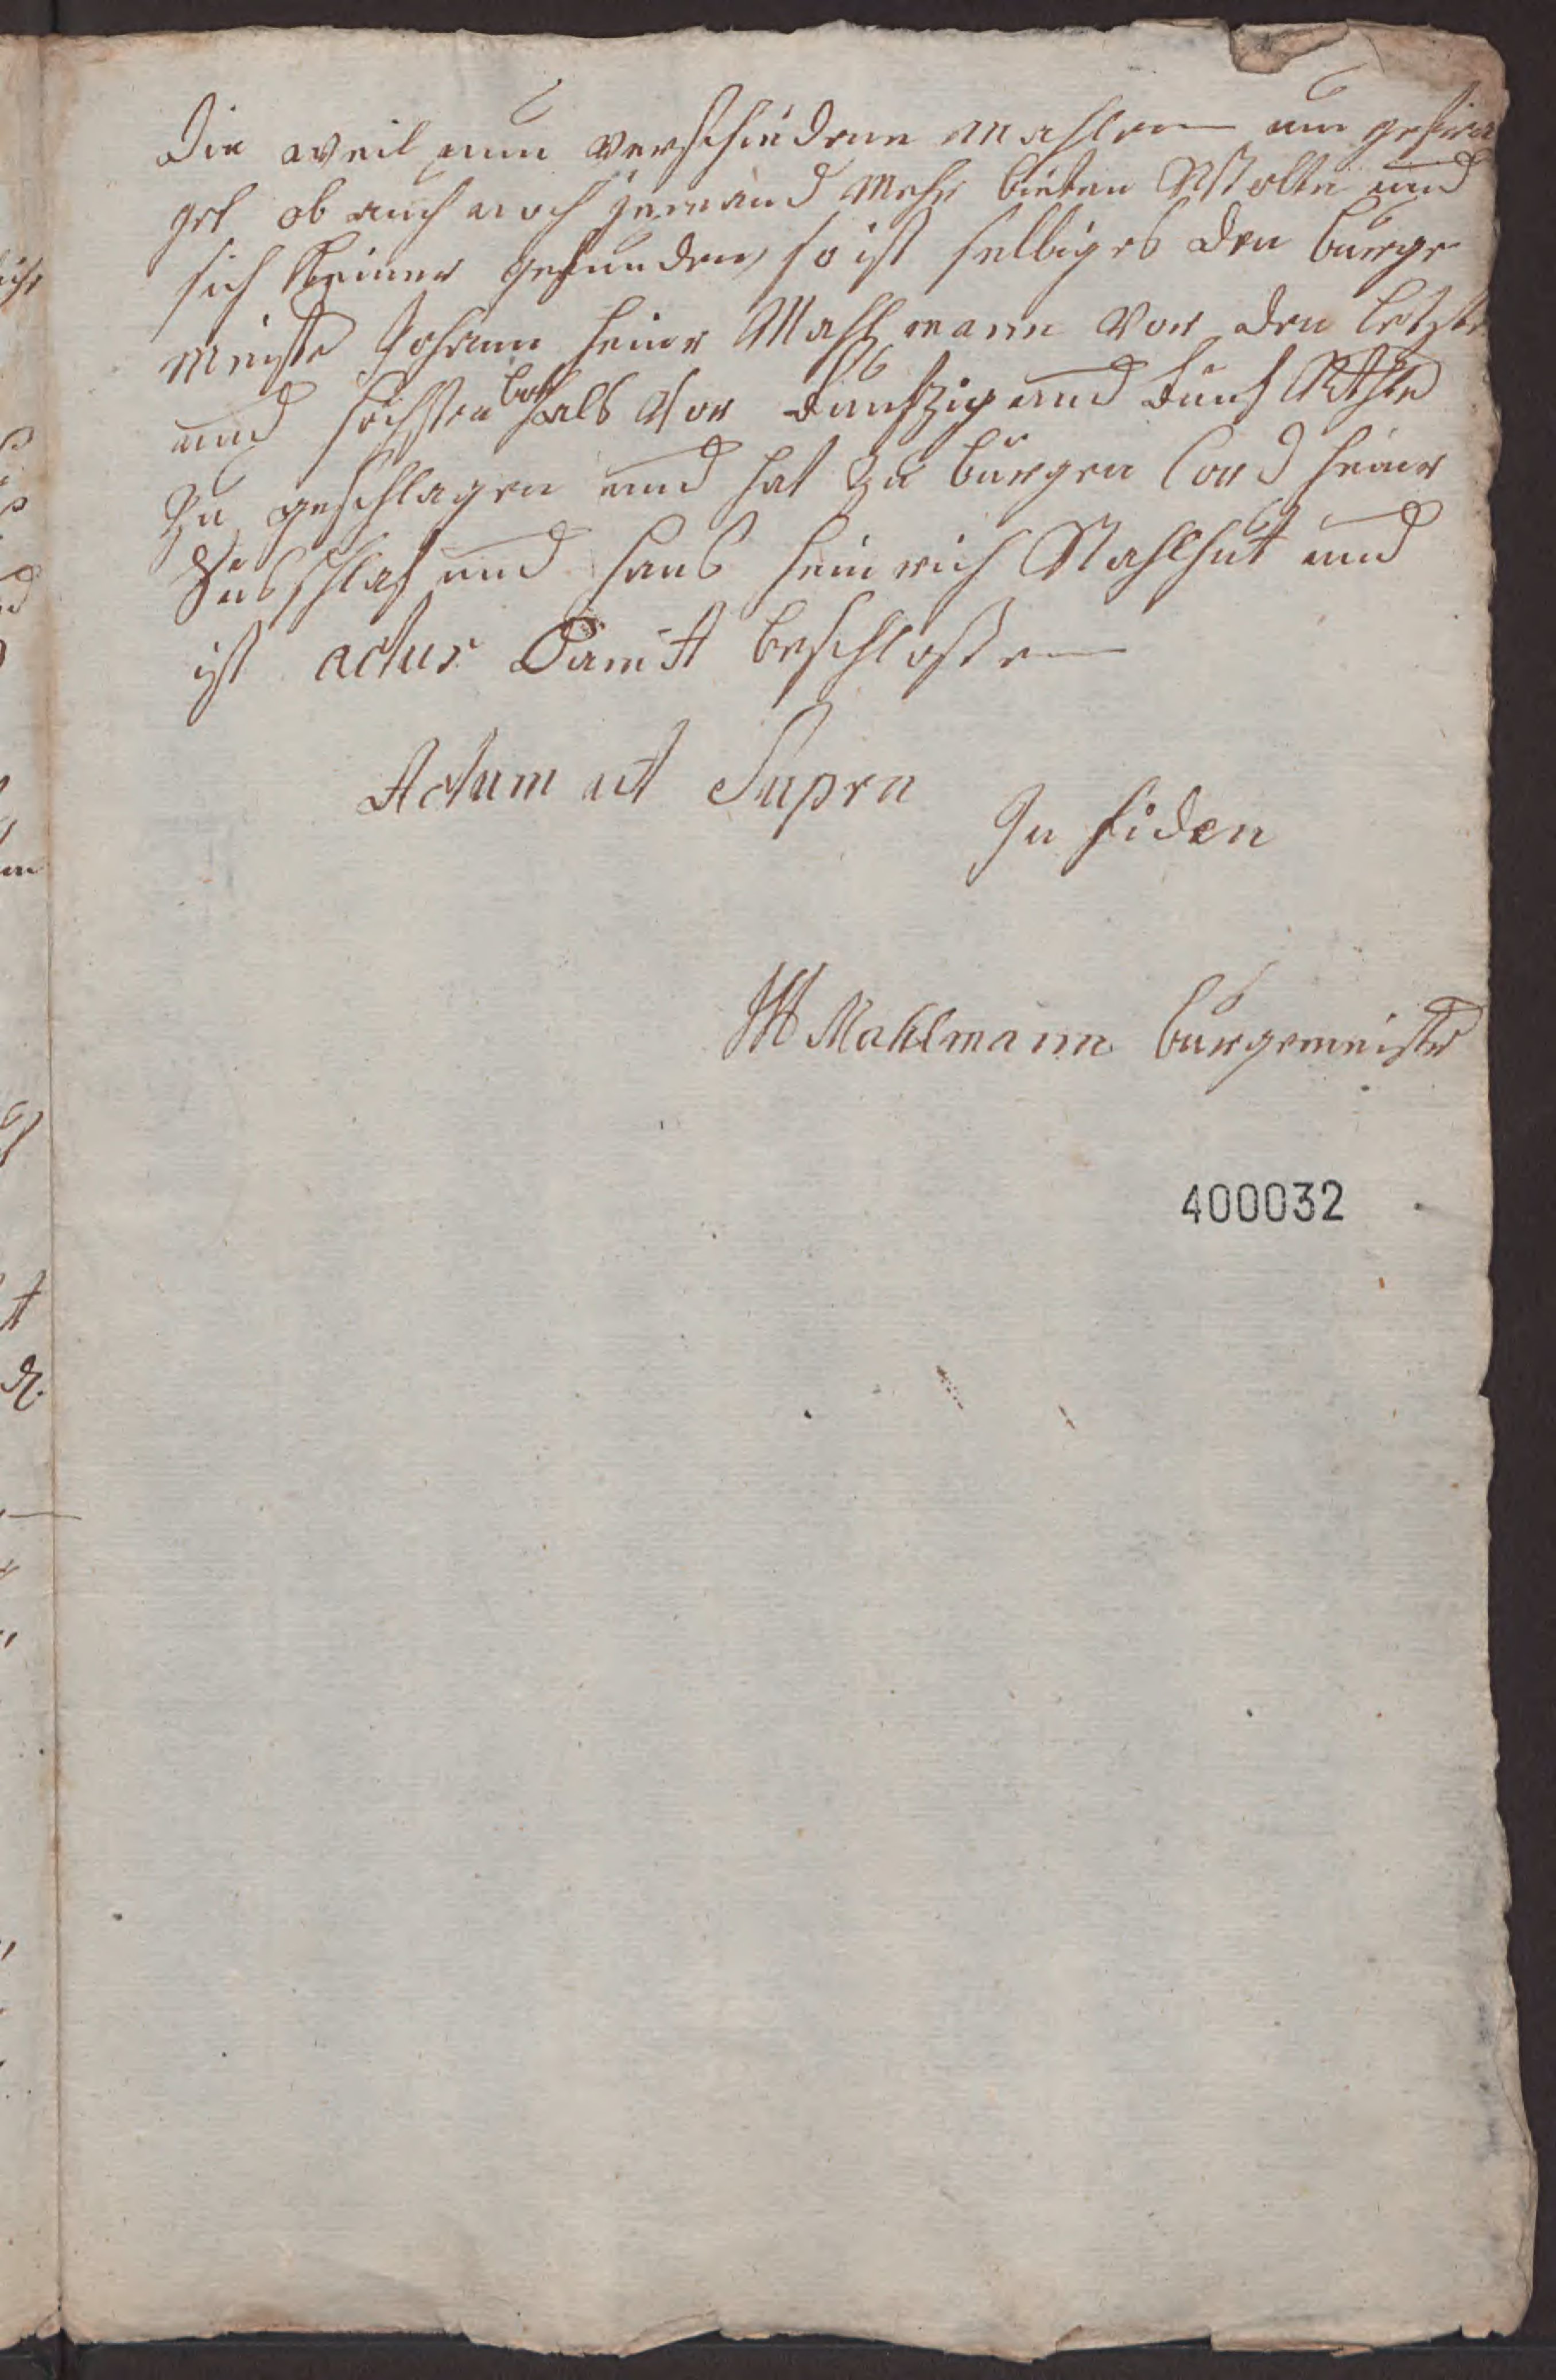 Die weil nun verschiedene mahlen um gefra
get ob auch noch jemand mehr bieten Wolte und
sich Keiner gefunden, so ist selbiges den burge
meister Johann heinr Mahlmann vor den letzten
und höchsten both als vor Funfzig und Funf Rthlr
Zu geschlagen und hat zu burgen Cord heinr
und Hans Heinrich Stahlhut und
ist actus Damit beschlossen
Actum ut Supra
In fiden
Mahlmann burgemeister
400032